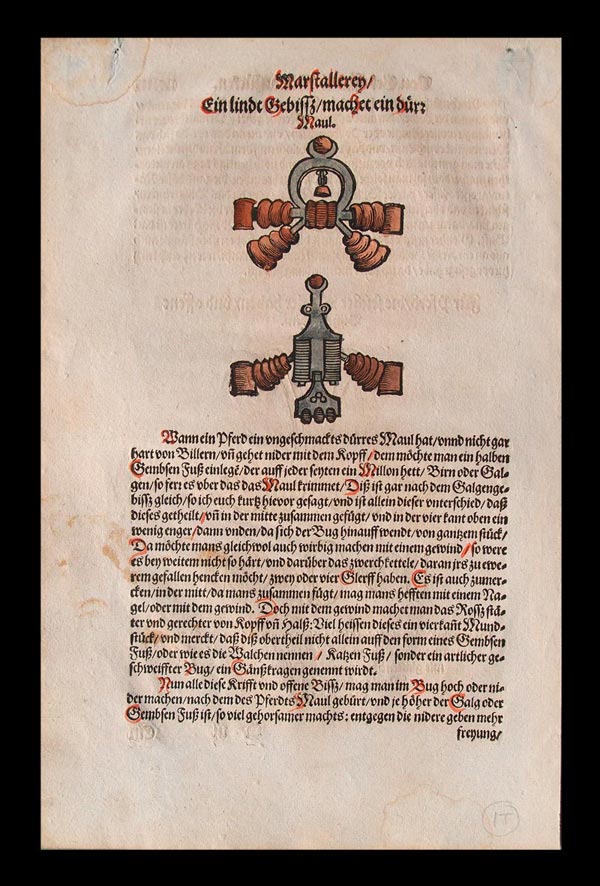 Marstallerey/
Ein lindt Gebissz/machet ein dürr
Maul.
Wann ein Pferd ein vngeschmackts dürres Maul hat/vnnd nicht gar
hart von Billern/vñ gehet nider mit dem Kopff/dem möchte man ein halben
Gembsen Fuß einlegē/der auff jeder seyten ein Millon hett/Birn oder Gal-
gen/so fern es vber das das Maul krimmet/Diß ist gar nach dem Galgenge-
bissz gleich/so ich euch kurtz hievor gesagt/vnd ist allein dieser vnterschied/daß
dieses getheilt/vñ in der mitte zusammen gefügt/vnd in der vier kant oben ein
wenig enger/dann vnden/da sich der Bug hinauff wendt/von gantzem stück/
Da möchte mans gleichwol auch wirbig machen mit einem gewind/so were
es bey weitem nicht so härt/vnd darüber das zwerchkettle/daran jrs zu ewe-
rem gefallen hencken möcht/zwey oder vier Glerff haben. Es ist auch zumer-
cken/in der mitt/da mans zusammen fügt/mag mans hefften mit einem Na-
gel/oder mit dem gewind. Doch mit dem gewind machet man das Rossz stä-
ter vnd gerechter von Kopff vñ Halß: Viel heissen dieses ein vierkañt Mund-
stück/vnd merckt/daß diß obertheil nicht allein auff den form eines Gembsen
Fuß/oder wie es die Walchen nennen/Katzen Fuß/sonder ein artlicher ge-
schweiffter Bug/ein Gänßkragen genennt wirdt.
Nun alle diese Krifft vnd offene Bissz/mag man im Bug hoch oder ni-
der machen/nach dem des Pferdts Maul gebürt/vnd je höher der Galg oder
Gembsen Fuß ist/so viel gehorsamer machts: entgegen die nidere geben mehr
freyung/
1T